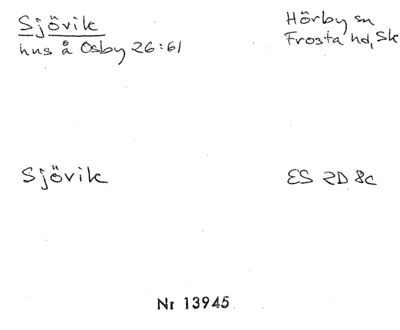 Sjövik
Hörby sn
hus å Osby 26:61
Frosta hd, Sk
Sjövik
ES 2D 8c
Nr 13945